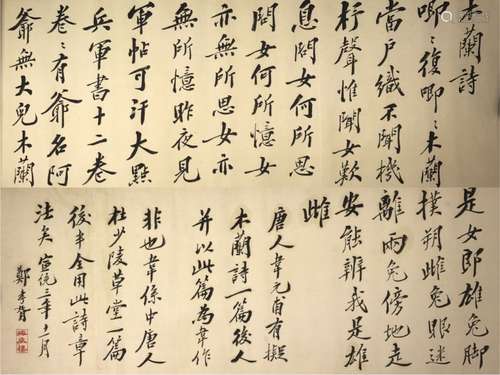 木蘭詩
唧〻復唧〻木蘭
當户織不聞機
杼聲惟聞女歎
息問女何所思
問女何所憶女
亦無所思女亦
無所憶昨夜見
軍帖可汗大點
兵軍書十二卷
卷〻有爺名阿
爺無大兒木蘭
是女郎雄兔脚
撲朔雌兔眼迷
離兩兔傍地走
安能辨我是雄
雌
唐人韋元甫有擬
木蘭詩一篇後人
并以此篇為韋作
非也韋係中唐人
杜少陵草堂一篇
後半全用此詩章
法矣 宣統三年十一月
鄭孝胥